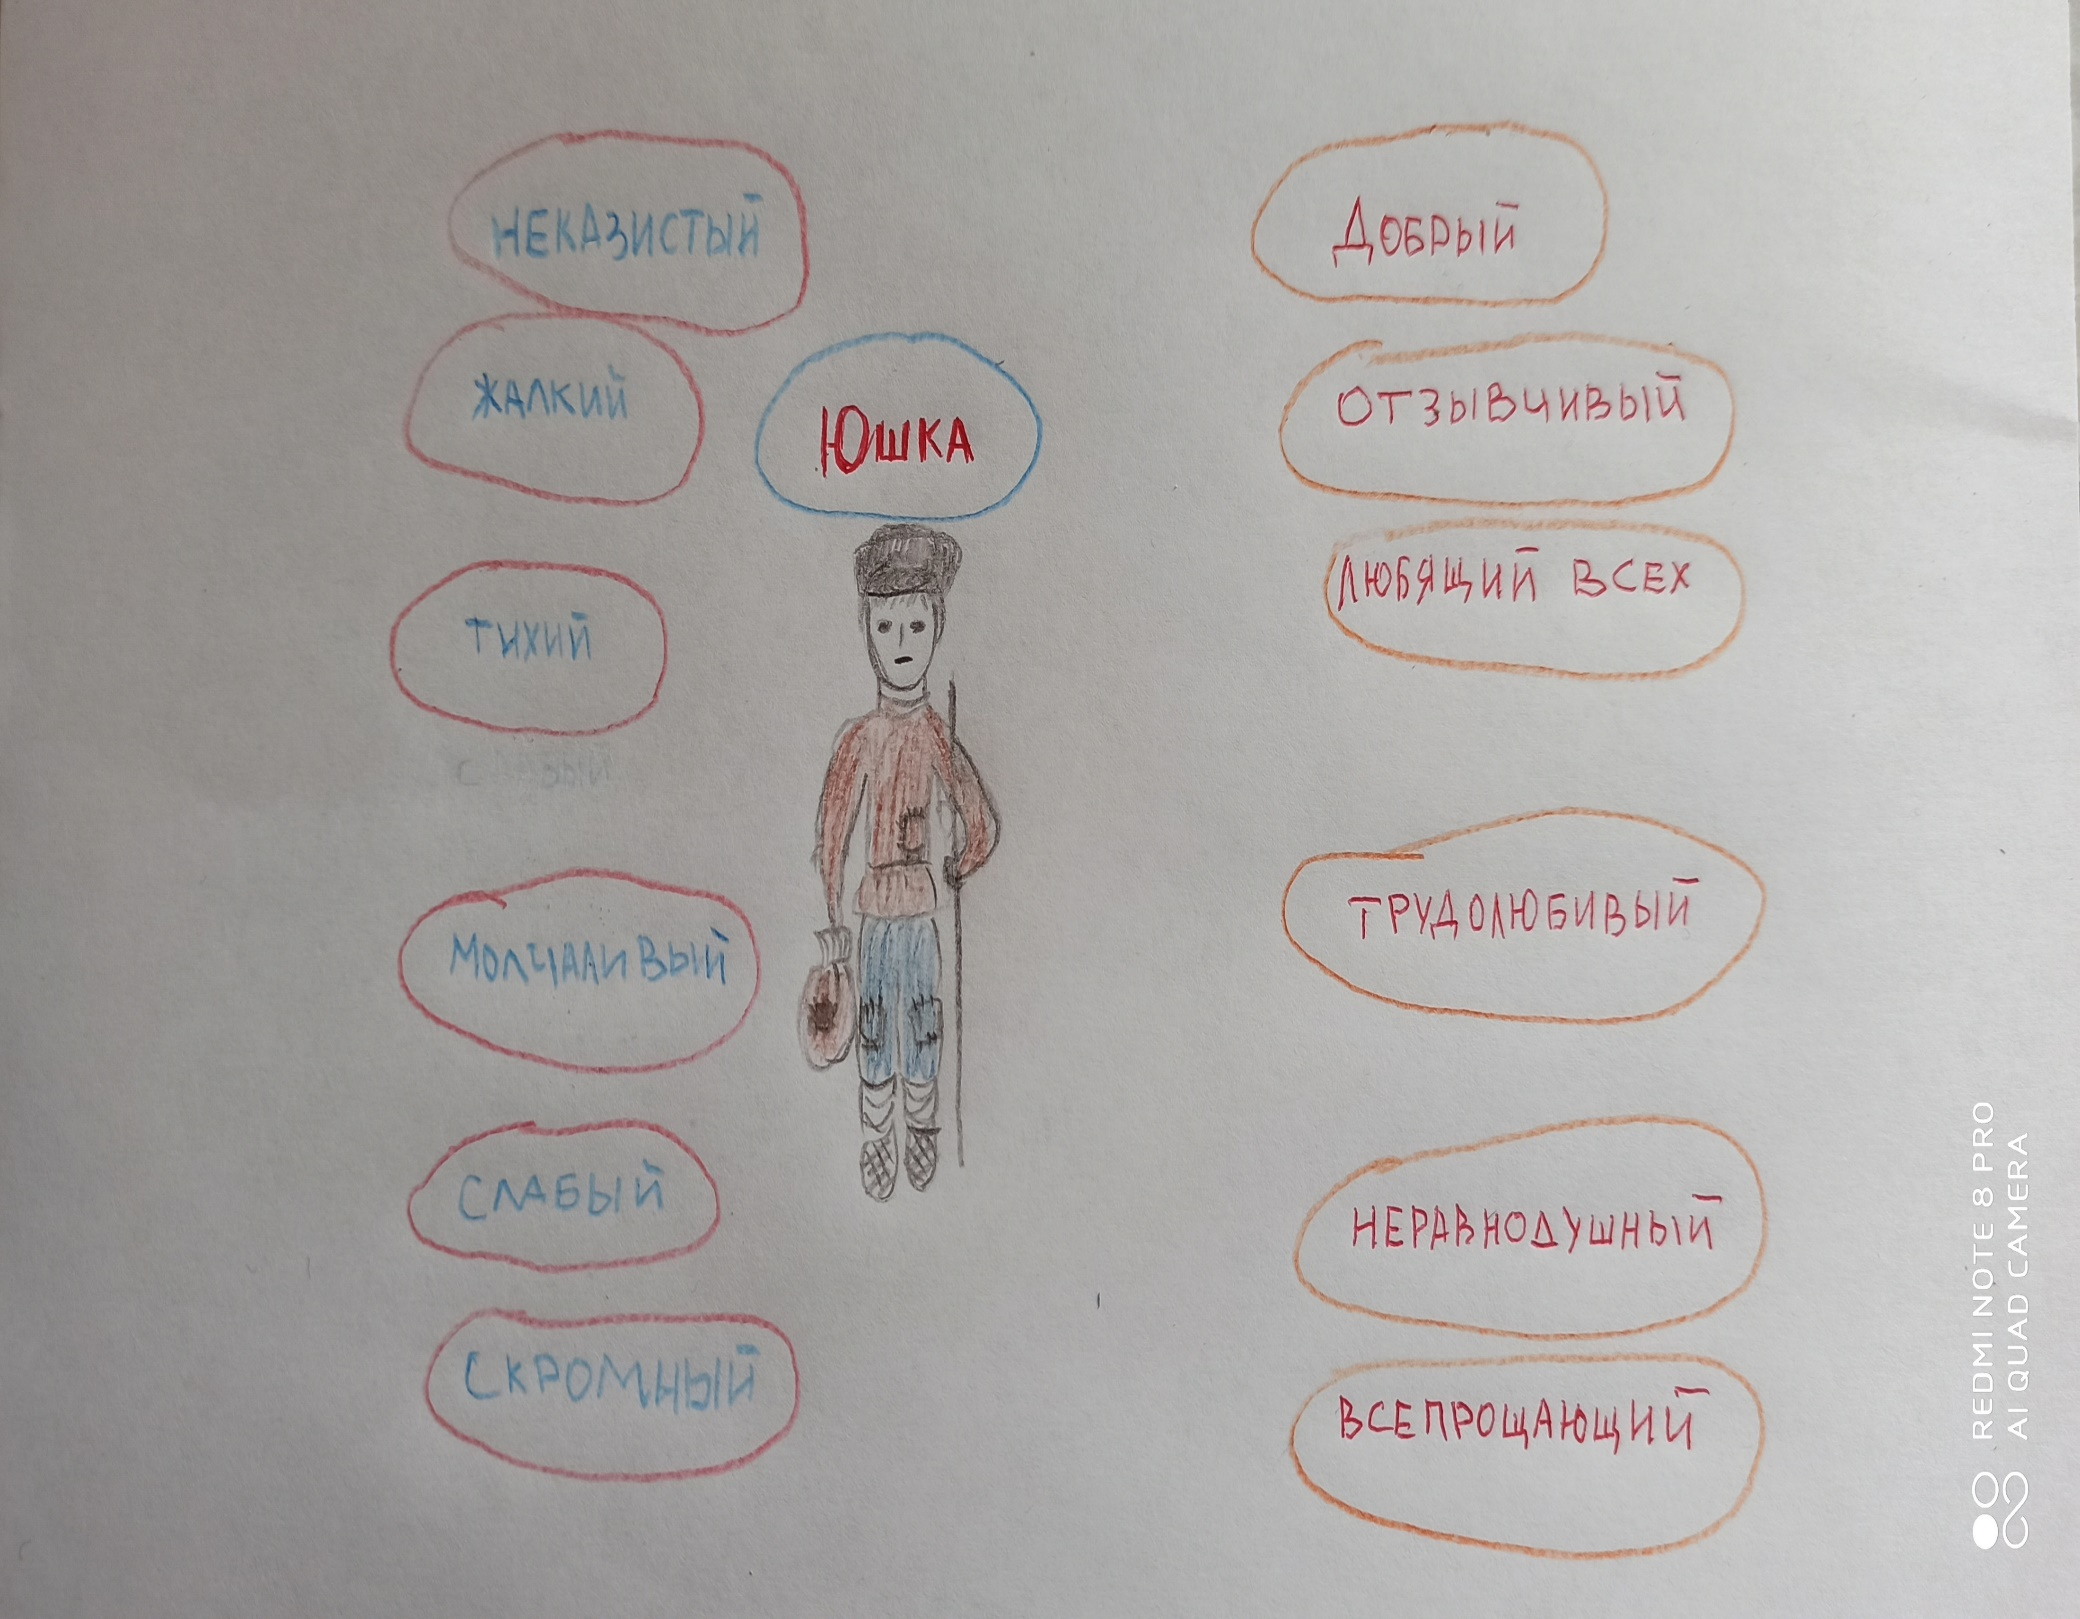 НЕКАЗИСТЫЙ
ЖАЛКИЙ
ТИХИЙ
МОЛЧАЛИВЫЙ
СЛАБЫЙ
СКРОМНЫЙ
ЮШКА
ДОБРЫЙ
ОТЗЫВЧИВЫЙ
ЛЮБЯЩИЙ ВСЕХ
ТРУДОЛЮБИВЫЙ
НЕРАВНОДУШНЫЙ
ВСЕПРОЩАЮЩИЙ
REDMI NOTE 8 PRO
AI QUAD CAMERA